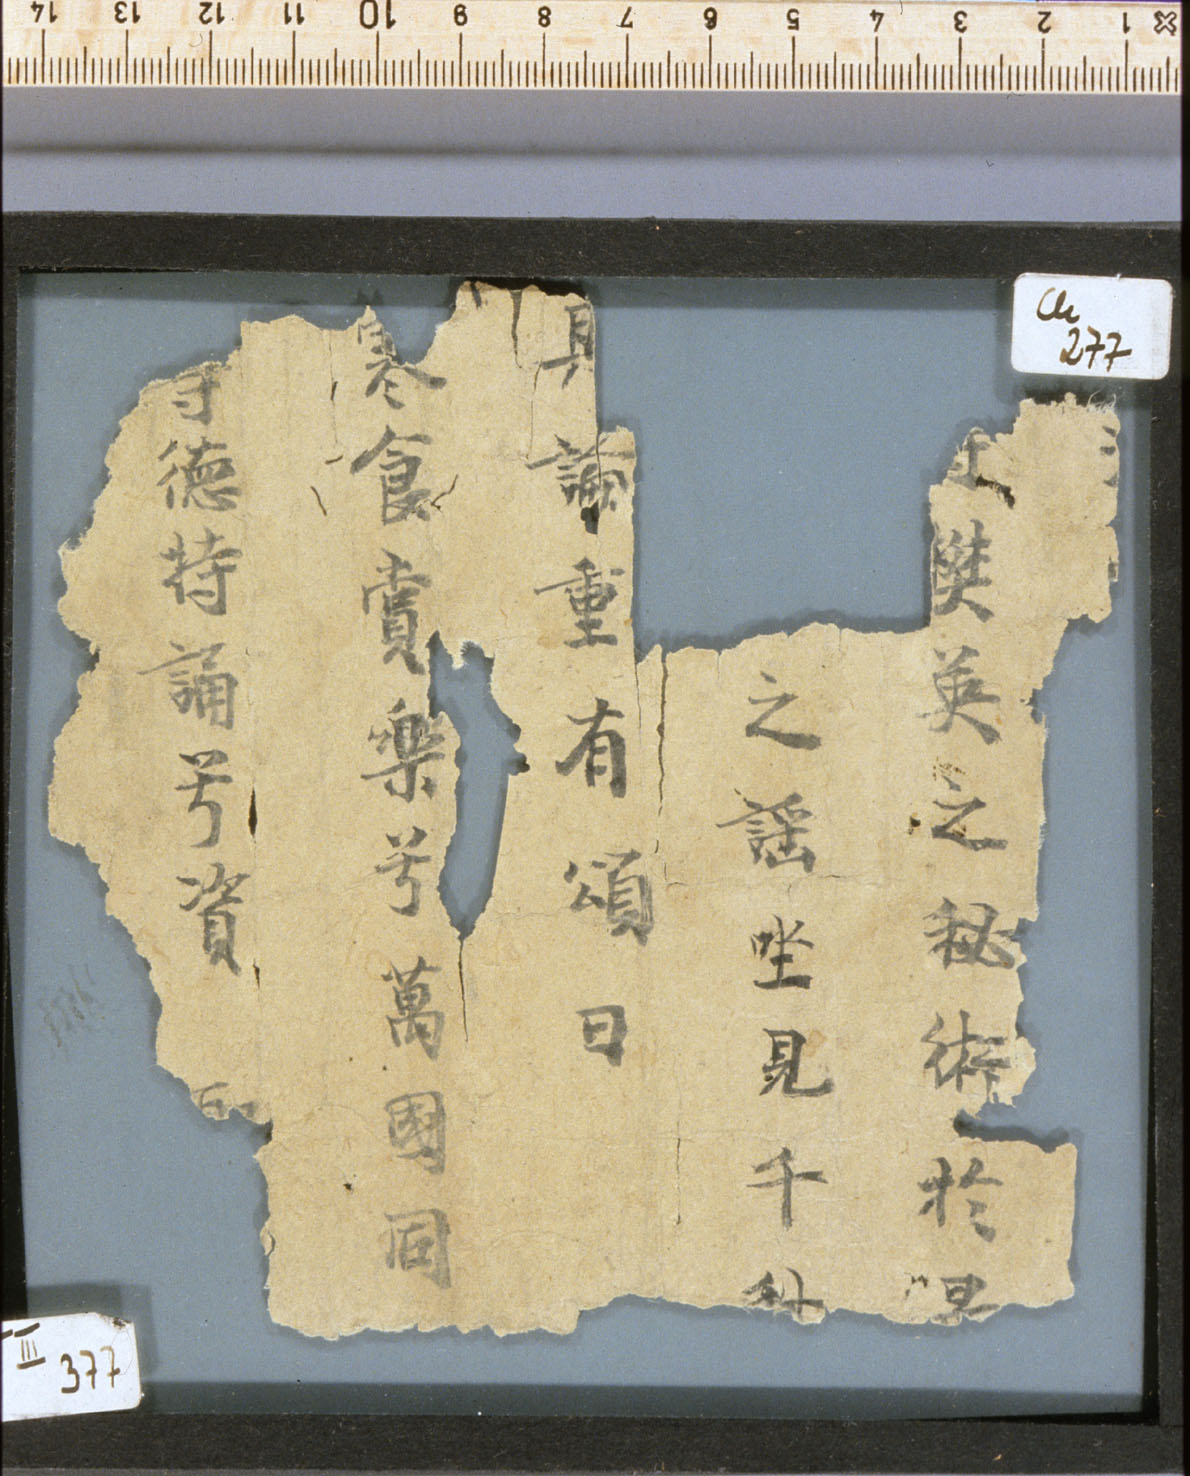 14 13 12 11 10 9 8 7 6 5 4 3 2 1
Ch
277
樊英之秘術於
之謡坐見千
具論重有頌曰
寒食賞樂兮萬國同
德特誦兮資
III 377